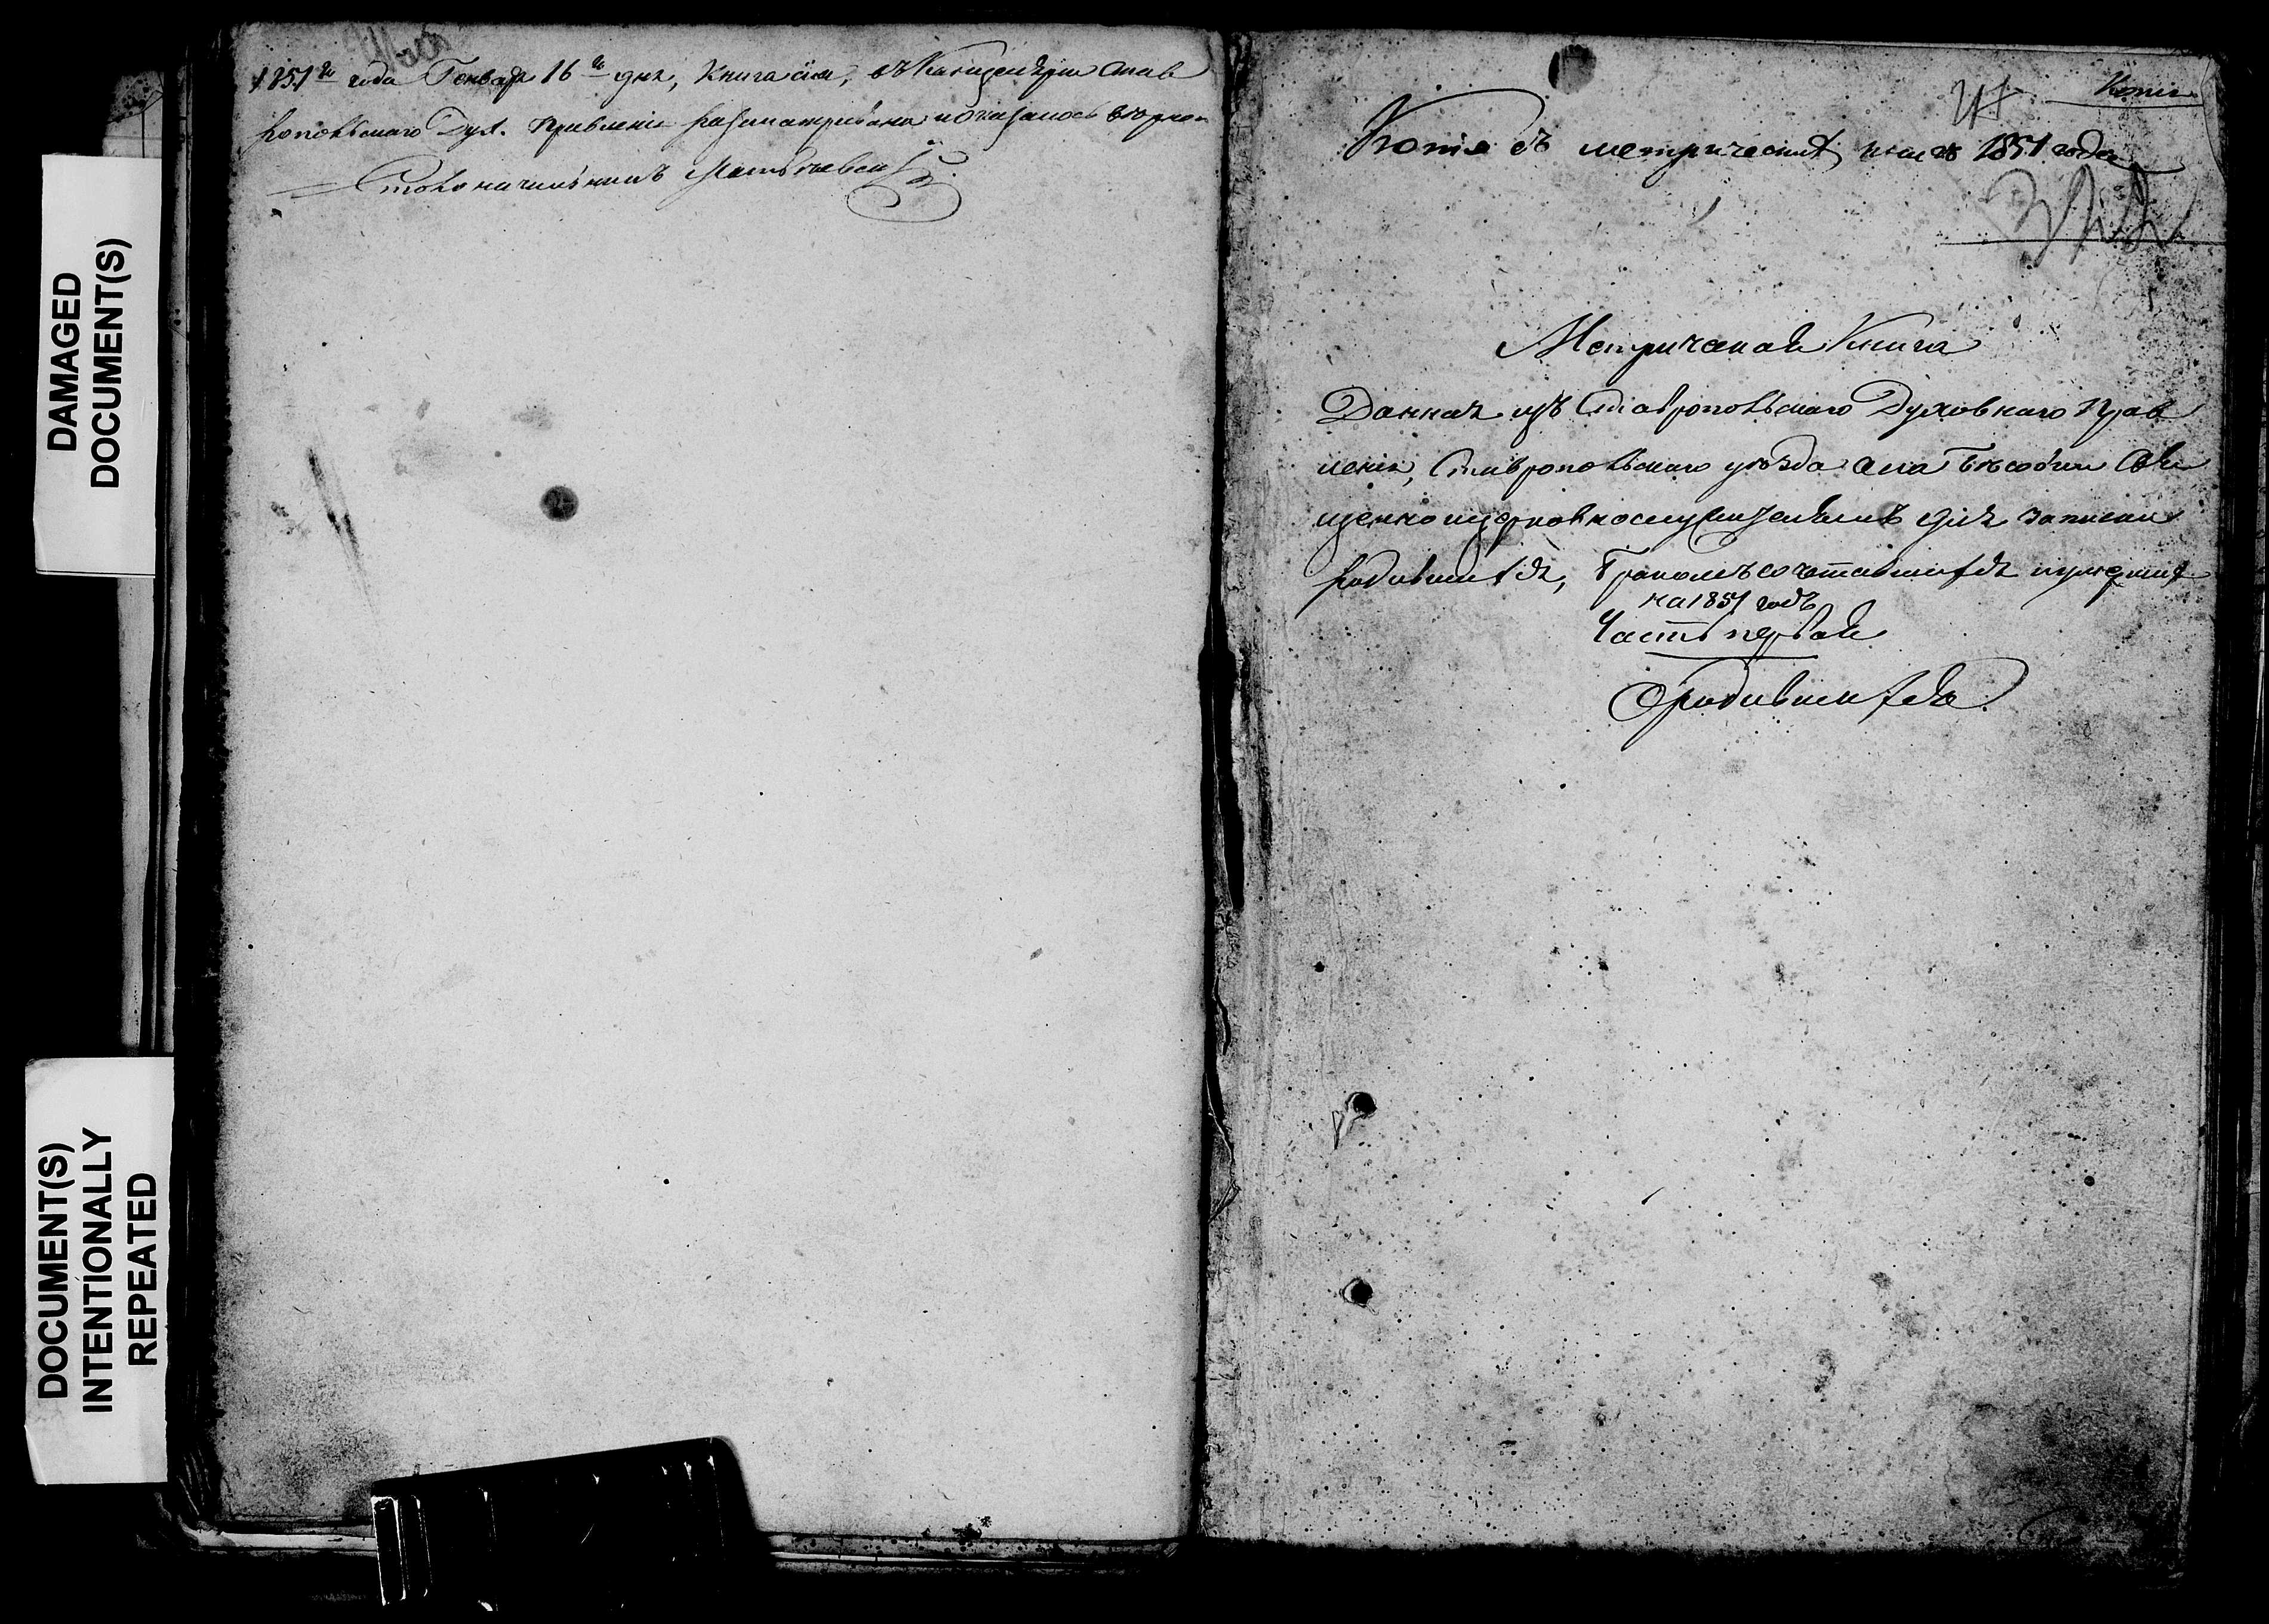 DAMAGED
DOCUMENT(S)
DOCUMENT(S)
INTENTIONALLY
REPEATED
1851го года Генваря 16го дня, Книга сія, въ Канцеляріи Став
ропольскаго Дух. Правленія разсматривана и оказалось
Столоначальникъ
Копія
Копія съ метрическихъ книгъ 1851 года
Метрическая Книга
Данная изъ Ставропольскаго Духовнаго Прав
ленія, Ставропольскаго уѣзда села Свя
щенноцерковнослужителямъ для записки
родившихся, бракомъ сочетавшихся и умершихъ
на 1851 годъ
Часть первая
О родившихся.